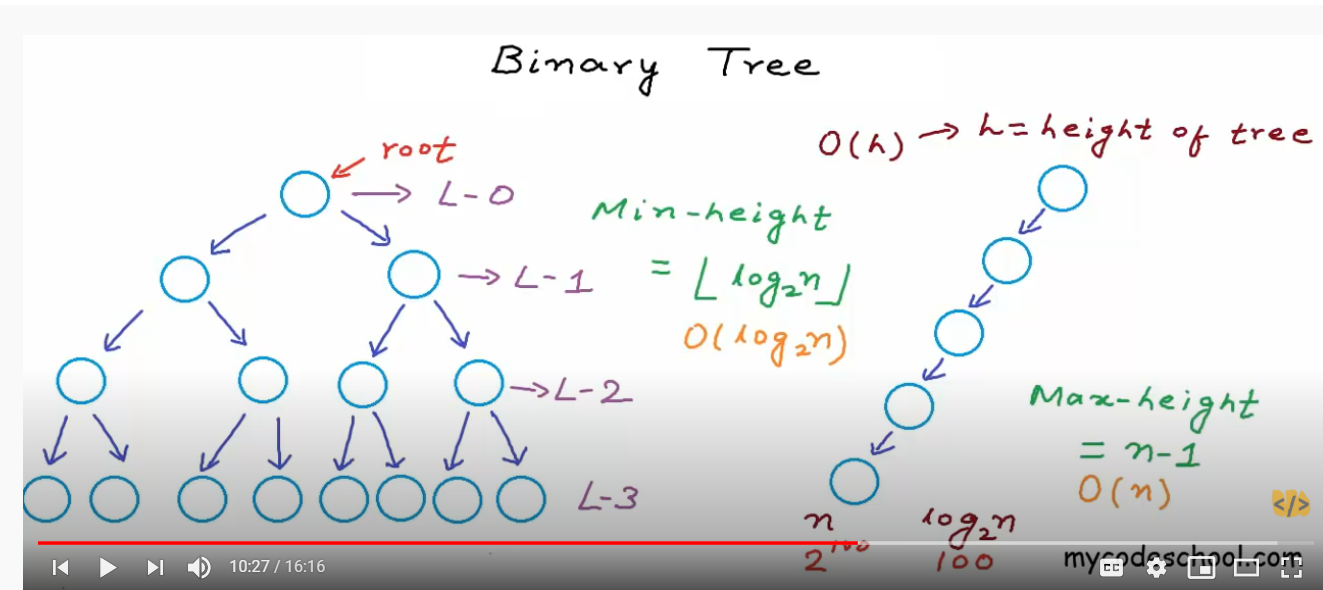 Binary Tree
root
L-0
L-1
L-2
L-3
Min-height
= ⌊log₂n⌋
O(log₂n)
O(h) → h = height of tree
Max-height
= n-1
O(n)
n log₂n
2¹⁰⁰ 100
</>
mycodeschool.com
10:27 / 16:16
CC